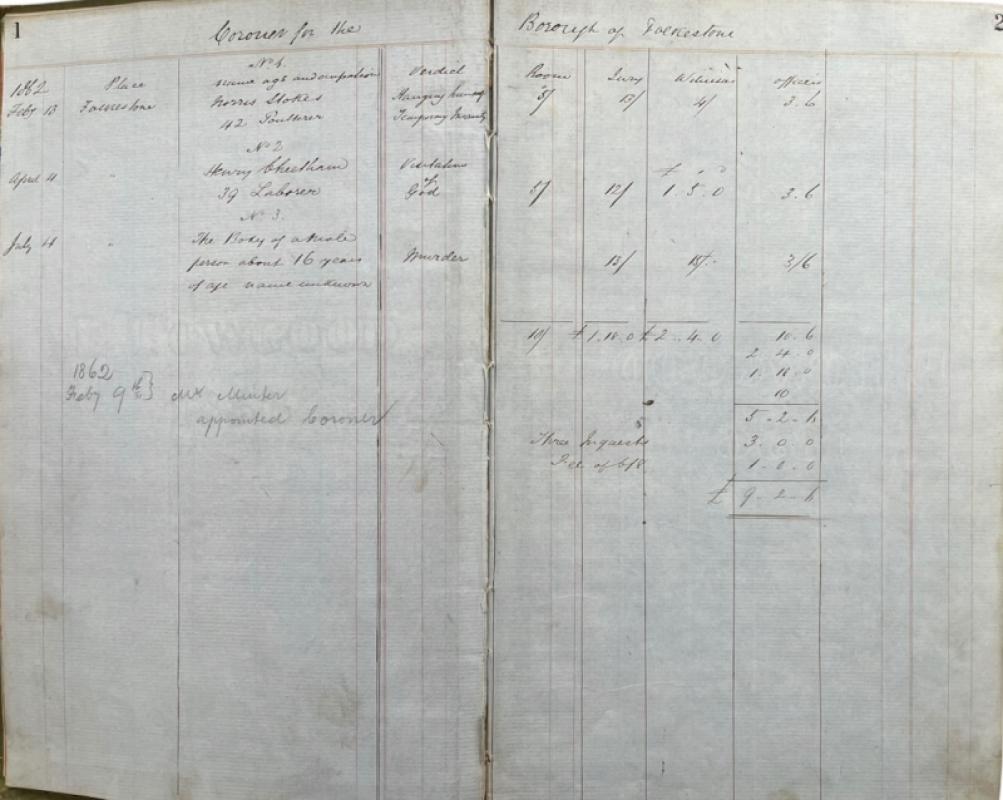 1 Coroner for the Borough of Folkestone 2
No 1.
1862 Place Name age and occupation Verdict Room Jury Witness officer
Feby 13 Folkestone Norris Stokes Hanging 5/ 13/ 4/ 3.6
42 Poulterer Temporary Insanity
No 2
April 4 " Henry Cheetham Visitation
of
39 Laborer God 5/ 12/ £1.5.0 3.6
No 3.
July 4 " The Body of a Male
person about 16 years Murder 13/ 15/. 3/6
of age name unknown
10/ £1.18.0 £2.4.0 10.6
2.4.0
1.18.0
10
1862
Feby 9th } Mr Minter
appointed Coroner
5-2-6
Three Inquests 3.0.0
Fee of 6/8 1.0.0
£ 9-2-6